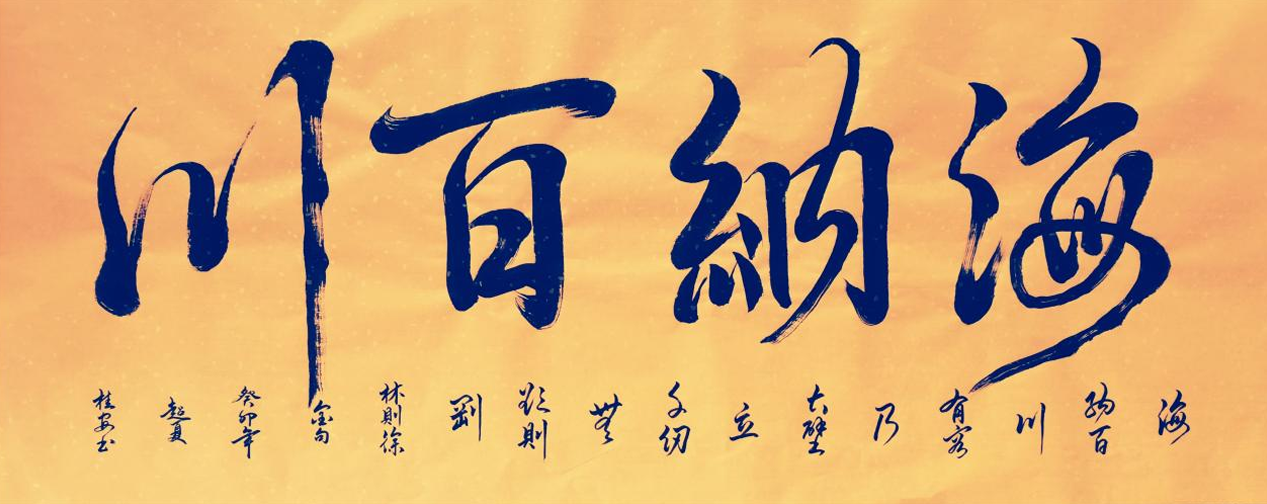 海納百川
海納百川有容乃大壁立千仞無欲則剛林則徐金句癸卯年夏桂安书